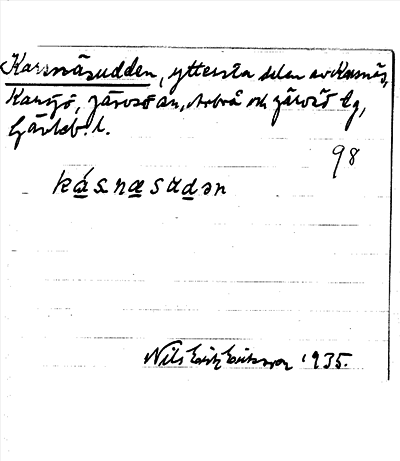 Karsnäsudden, yttersta delen av Karsnäs,
Karsjö, Järvsö an, Arbrå och Järvsö tg,
Gävleb. l.
98
kásnæsudən
Nils Erik Eriksson 1935.